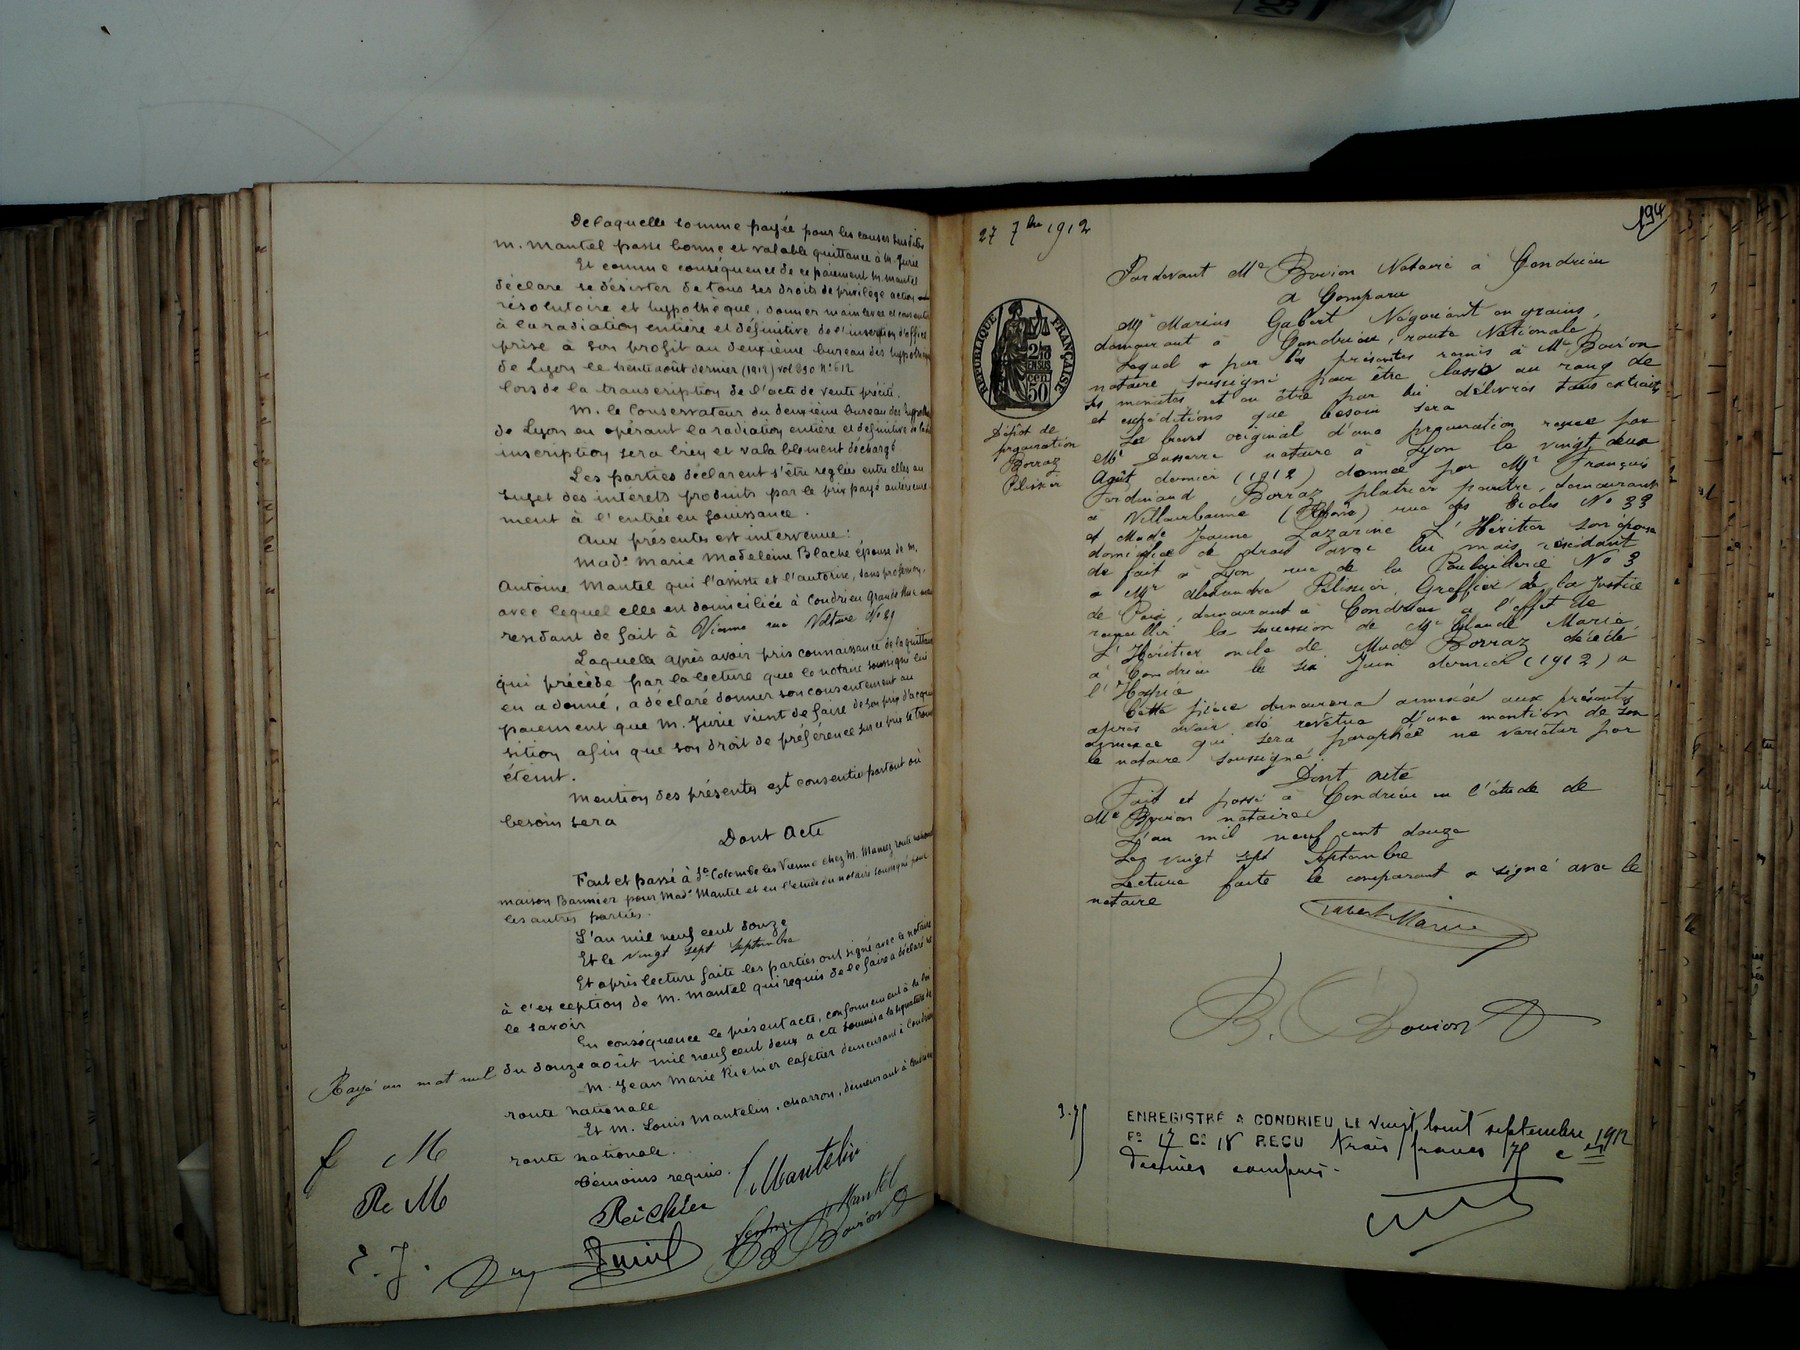 De laquelle somme payée pour les causes sus dites
M. Mantel passe bonne et valable quittance à M. Jurie
Et comme conséquence de ce paiement M. Mantel
déclare se désister de tous ses droits de privilège action
résolutoire et hypothèque, donner mainlevée et consentir
à la radiation entière et définitive de l'inscription d'office
prise à son profit au deuxième bureau des hypothèques
de Lyon le trente août dernier (1912) vol 830 N° 612
lors de la transcription de l'acte de vente précité.
M. le Conservateur du deuxième bureau des hypothèques
de Lyon en opérant la radiation entière et définitive de la dite
inscription sera bien et valablement déchargé
Les parties déclarent s'être réglées entre elles au
sujet des intérêts produits par le prix payé antérieure
ment à l'entrée en jouissance.
Aux présentes est intervenue:
Made Marie Madeleine Blache épouse de M.
Antoine Mantel qui l'assiste et l'autorise, sans profession,
avec lequel elle est domiciliée à Condrieu Grande Rue mais
résidant de fait à Vienne rue Voltaire N°
Laquelle après avoir pris connaissance de la quittance
qui précède par la lecture que le notaire soussigné lui
en a donné, a déclaré donner son consentement au
paiement que M. Jurie vient de faire de son prix d'acqui
sition afin que son droit de préférence sur ce prix se trouve
éteint.
Mention des présentes est consentie partout où
besoin sera
Dont Acte
Fait et passé à Ste Colombe les Vienne chez M. route nationale
maison Bannier pour Made Mantel et en l'étude du notaire soussigné pour
les autres parties.
L'an mil neuf cent douze
Et le vingt sept septembre
Et après lecture faite les parties ont signé avec le notaire
à l'exception de M. Mantel qui requis de le faire a déclaré ne
le savoir
En conséquence le présent acte, conformément à la loi
du douze août mil neuf cent deux a été soumis à la signature de
M. Jean Marie Richier cafetier demeurant à Condrieu
route nationale
Et M. Louis Mantelin, charron, demeurant à Condrieu
route nationale.
Témoins requis.
Rayé un mot nul
f M
Re M
E. J.
Richier
Mantelin
Jurie
Mantel
B Bovion
194
27 7bre 1912
RÉPUBLIQUE FRANÇAISE
2/10
EN SUS
cen.
50
Dépôt de
procuration
Borraz
Pelissier
Pardevant Me Bovion Notaire à Condrieu
a Comparu
Mr Marius Gabert Négociant en grains,
demeurant à Condrieu, route Nationale,
Lequel a par les présentes remis à Me Bovion
notaire soussigné pour être classé au rang de
ses minutes et en être par lui délivrés tous extraits
et expéditions que besoin sera
Le brevet original d'une procuration reçue par
Me Dusserre notaire à Lyon le vingt deux
Août dernier (1912) donnée par Mr François
Ferdinand Borraz platrier peintre, demeurant
à Villeurbanne (Rhône) rue des Ecoles No 33
et Made Jeanne Lazarine L'Héritier son épouse
domiciliée de droit avec lui mais résidant
de fait à Lyon rue de la Poulaillerie No 3
a Mr Alexandre Pelissier, Greffier de la Justice
de Paix, demeurant à Condrieu à l'effet de
recueillir la succession de Mr Claude Marie
L'Héritier oncle de Made Borraz décédé
à Condrieu le six Juin dernier (1912) a
l'Hospice
Cette pièce demeurera annexée aux présentes
après avoir été revêtue d'une mention de son
annexe qui sera paraphée ne varietur par
le notaire soussigné.
Dont acte
Fait et passé à Condrieu en l'étude de
Me Bovion notaire
L'an mil neuf cent douze
Les vingt sept Septembre
Lecture faite le comparant a signé avec le
notaire
Gabert Marius
B. Bovion
3.75
ENREGISTRÉ A CONDRIEU LE vingt huit septembre 1912
Fo 17 Co 18 REÇU trois francs 75 c
décimes compris.